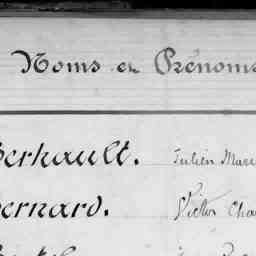 Noms et Prénoms
Berhault. Julien Mari
Bernard. Victor Cha